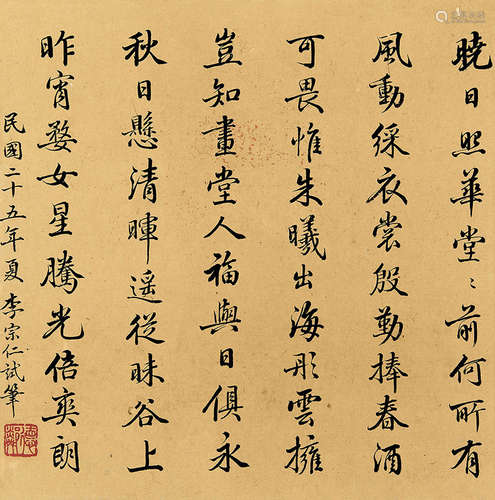 曉日照華堂〻前何所有
風動綵衣裳殷勤捧春酒
可畏惟朱曦出海彤雲擁
豈知畫堂人福與日俱永
秋日懸清暉遥從昧谷上
昨宵婺女星騰光倍奕朗
民國二十五年夏李宗仁試筆